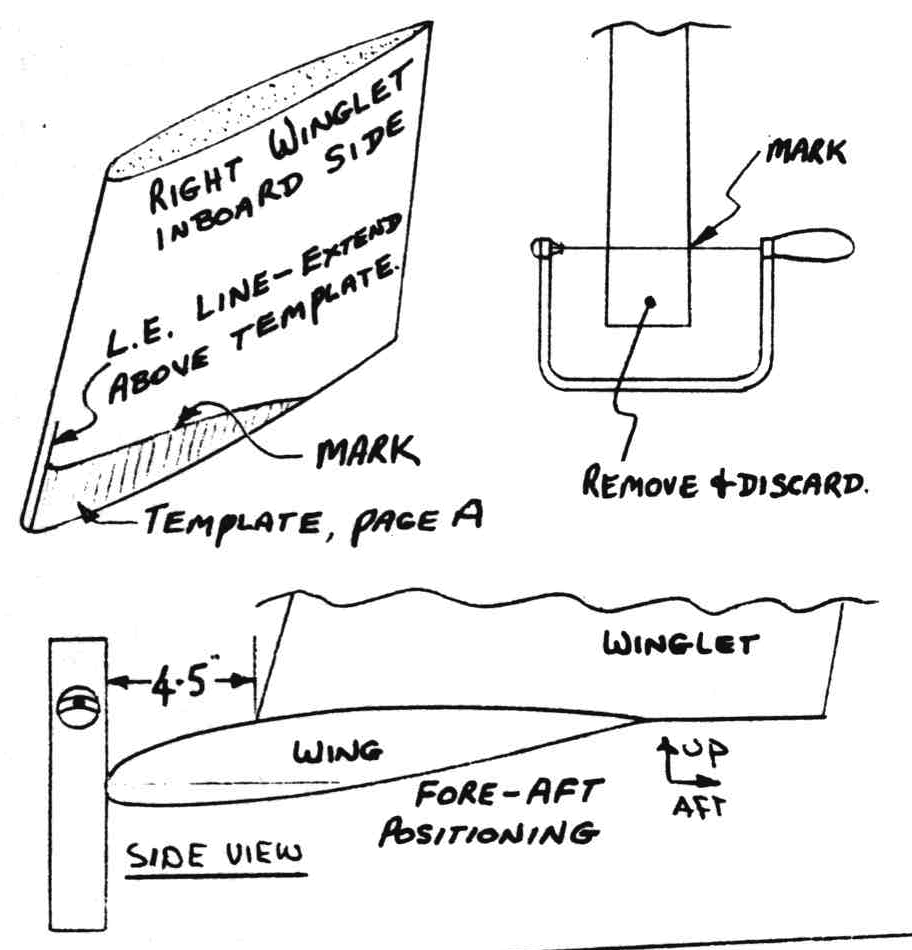 RIGHT WINGLET
INBOARD SIDE
L.E. LINE-EXTEND
ABOVE TEMPLATE.
MARK
TEMPLATE, PAGE A
MARK
REMOVE & DISCARD.
WINGLET
4.5"
WING
UP
AFT
FORE-AFT
POSITIONING
SIDE VIEW